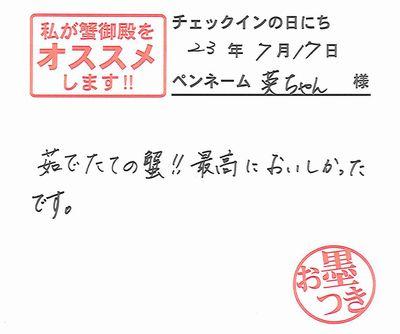 私が蟹御殿を
オススメ
します!!
チェックインの日にち
23年7月17日
ペンネーム 葵ちゃん 様
茹でたての蟹!!最高においしかった
です。
お墨つき